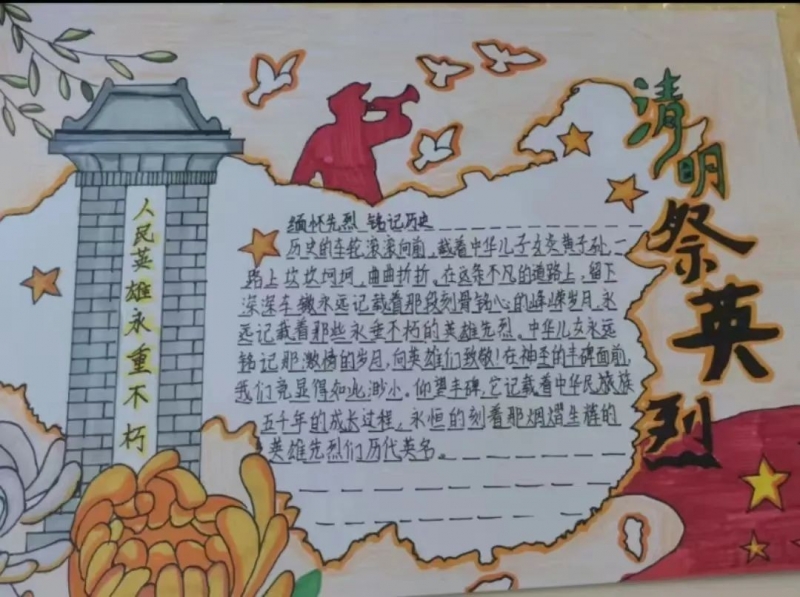 清明祭英烈
人民英雄永垂不朽
缅怀先烈 铭记历史
历史的车轮滚滚向前,载着中华儿子女炎黄子孙,一
路上坎坎坷坷,曲曲折折。在这条不凡的道路上,留下
深深车辙永远记载着那段刻骨铭心的峥嵘岁月,永
远记载着那些永垂不朽的英雄先烈。中华儿女永远
铭记那激情的岁月,向英雄们致敬!在神圣的丰碑面前,
我们竟显得如此渺小。仰望丰碑,它记载着中华民族
五千年的成长过程,永恒的刻着那熠熠生辉的
英雄先烈们历代英名。